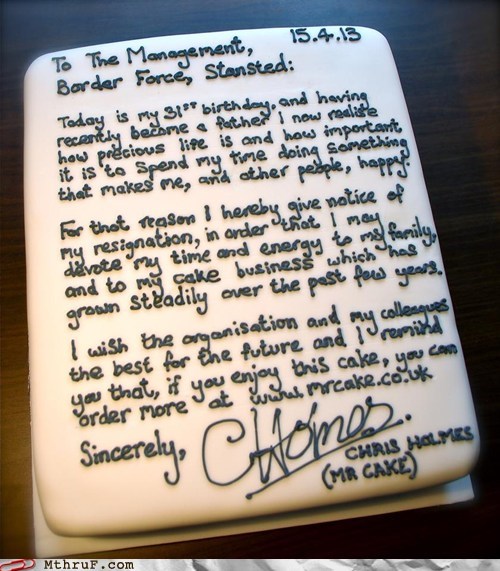 15.4.13
To The Management,
Border Force, Stansted:
Today is my 31st birthday, and having
recently become a father I now realise
how precious life is and how important
it is to spend my time doing something
that makes me, and other people, happy.
For that reason I hereby give notice of
my resignation, in order that I may
devote my time and energy to my family,
and to my cake business which has
grown steadily over the past few years.
I wish the organisation and my colleagues
the best for the future and I remind
you that, if you enjoy this cake, you can
order more at www.mrcake.co.uk
Sincerely,
CHolmes.
CHRIS HOLMES
(MR CAKE)
MThruF.com